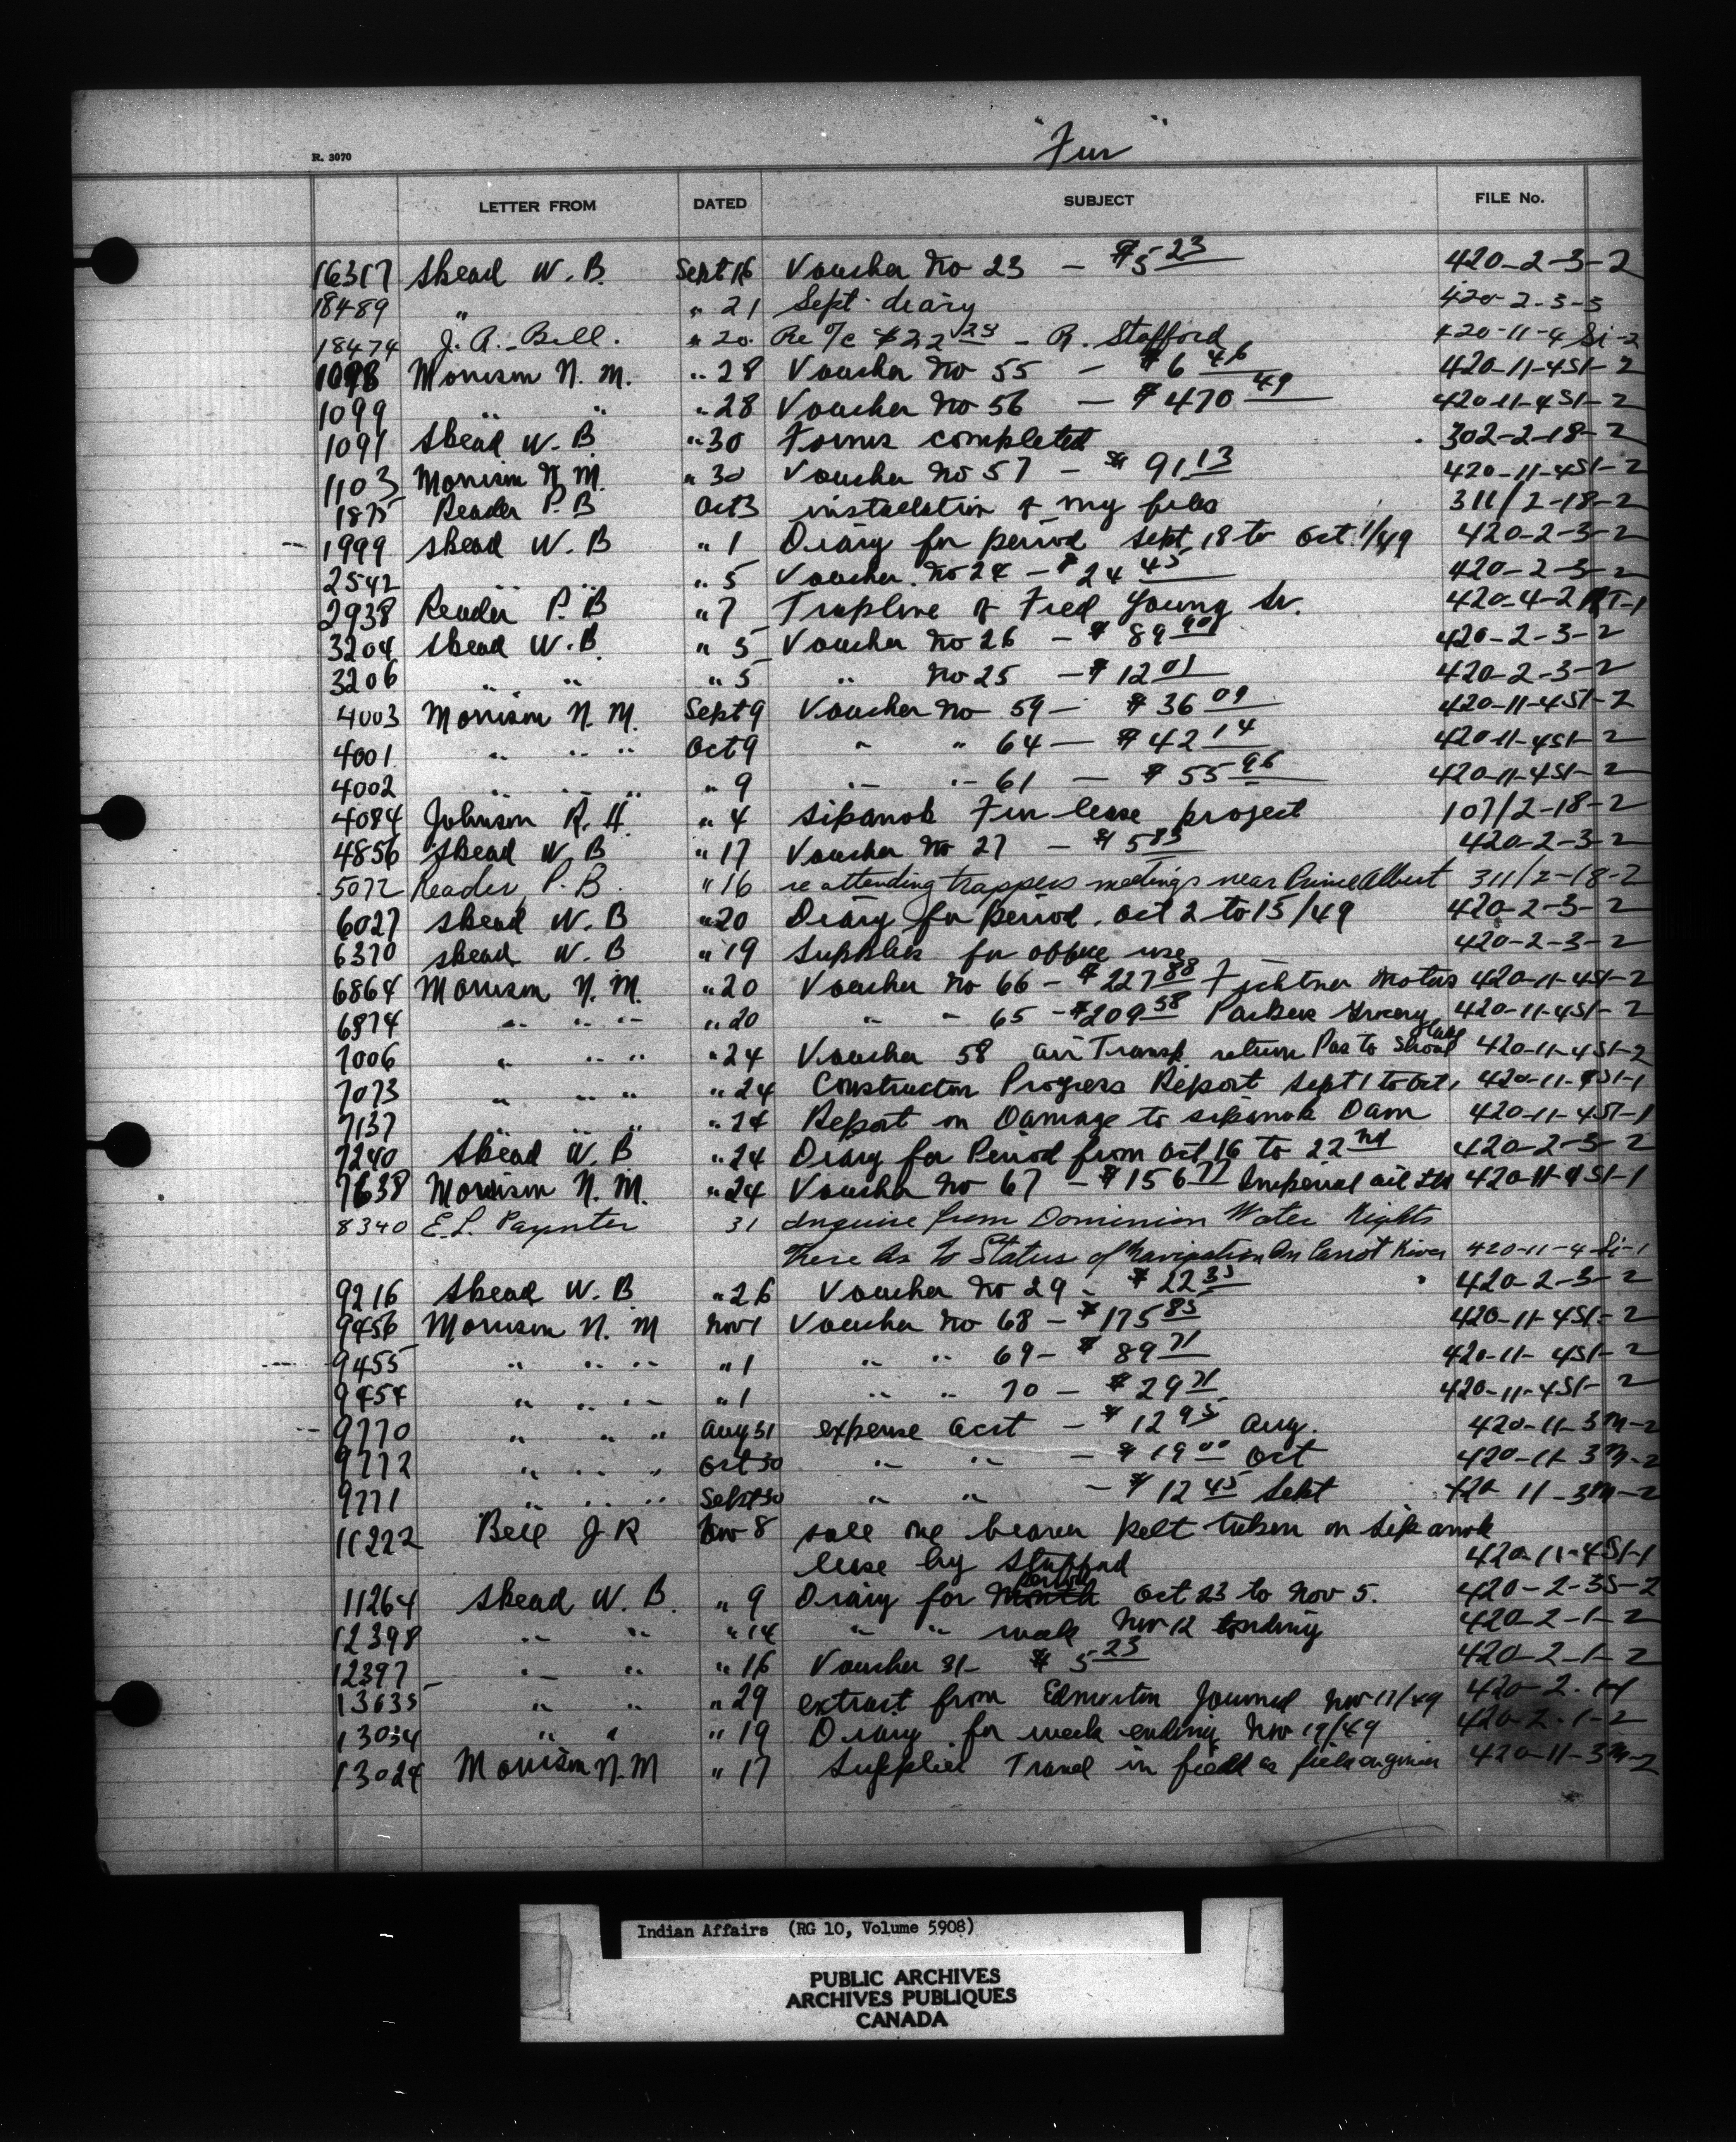 "Fur"
R. 3070
LETTER FROM DATED SUBJECT FILE No.
16317 Skead W. B. Sept 16 Voucher No 23 - $5 23 420-2-3-2
18489 " " 21 Sept. diary 420-2-3-3
18474 J. A. Bell. " 20. Re o/c $22 25 - R. Stafford 420-11-4 Si-2
1098 Morrison N. M. " 28 Voucher No 55 - $6 46 420-11-4SI-2
1099 " " " 28 Voucher No 56 - $470 49 420-11-4SI-2
1091 Skead W. B " 30 Forms completed 302-2-18-2
1103 Morrison N. M. " 30 Voucher No 57 - $91.13 420-11-4SI-2
1875 Reader P. B Oct 3 installation of my files 311/2-18-2
1999 Skead W. B " 1 Diary for period Sept. 18 to Oct. 1/49 420-2-3-2
2542 " " " 5 Voucher No 24 - $24 45 420-2-3-2
2938 Reader P. B " 7 Trapline of Fred Young Sr. 420-4-2 RT-1
3204 Skead W. B. " 5 Voucher No 26 - $89 90 420-2-3-2
3206 " " " 5 " No 25 - $12 01 420-2-3-2
4003 Morrison N. M. Sept 9 Voucher No 59 - $36 09 420-11-4SI-2
4001 " " " Oct 9 " " 64 - $42 14 420-11-4SI-2
4002 " " " " 9 " " 61 - $55 96 420-11-4SI-2
4084 Johnson R. H. " 4 Sipanok Fur lease project 107/2-18-2
4856 Skead W. B " 17 Voucher No 27 - $5 85 420-2-3-2
5072 Reader, P. B. " 16 re attending trappers meetings near Prince Albert 311/2-18-2
6027 Skead W. B " 20 Diary for period. Oct 2 to 15/49 420-2-3-2
6370 Skead W. B " 19 Supplies for office use 420-2-3-2
6864 Morrison N. M. " 20 Voucher No 66 - $227 88 Fichtner Motors 420-11-4SI-2
6874 " " " " 20 " " 65 - $209 58 Parkers Grocery 420-11-4SI-2
7006 " " " " 24 Voucher 58 air Transp. return Pas to Shoal Lake 420-11-4SI-2
7073 " " " " 24 Construction Progress Report Sept 1 to Oct 1 420-11-4SI-1
7137 " " " " 24 Report on Damage to Sipanok Dam 420-11-4SI-1
7240 Skead W. B " 24 Diary for Period from Oct 16 to 22nd 420-2-3-2
7638 Morrison N. M. " 24 Voucher No 67 - $156 77 Imperial oil Ltd 420-11-4SI-1
8340 E. L. Paynter 31 Inquire from Dominion Water Rights
there As to Status of Navigation On Carrot River 420-11-4 Si-1
9216 Skead W. B " 26 Voucher No 29 - $22 35 420-2-3-2
9456 Morrison N. M Nov 1 Voucher No 68 - $175 85 420-11-4SI-2
9455 " " " " 1 " " 69 - $89 71 420-11-4SI-2
9454 " " " " 1 " " 70 - $29 71 420-11-4SI-2
9770 " " " Aug 31 expense acct - $12 95 Aug. 420-11-3M-2
9772 " " " Oct 30 " " - $19 00 Oct 420-11-3M-2
9771 " " " Sept 30 " " - $12 45 Sept 420-11-3M-2
11222 Bell J R Nov 8 sale one beaver pelt taken on Sipanok
lease by Stafford 420-11-4SI-1
11264 Skead W. B. " 9 Diary for period Oct 23 to Nov 5. 420-2-3S-2
12398 " " " 14 " " week Nov 12 ending 420-2-1-2
12397 " " " 16 Voucher 31 - $5 23 420-2-1-2
13635 " " " 29 extract from Edmonton Journal Nov 17/49 420-2-1-1
13034 " " " 19 Diary for week ending Nov 19/49 420-2-1-2
13024 Morrison N. M " 17 Supplies Travel in field as field engineer 420-11-3M-2
Indian Affairs (RG 10, Volume 5908)
PUBLIC ARCHIVES
ARCHIVES PUBLIQUES
CANADA